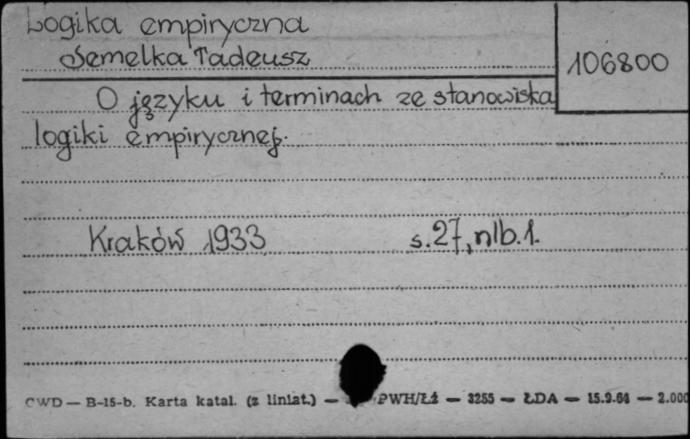 Logika empiryczna
Semelka Tadeusz
106800
O języku i terminach ze stanowiska
logiki empirycznej.
Kraków 1933 s.27, nlb.1.
CWD — B-15-b. Karta katal. (z liniat.) — PWH/Łż — 3255 — ŁDA — 15.9.64 — 2.000